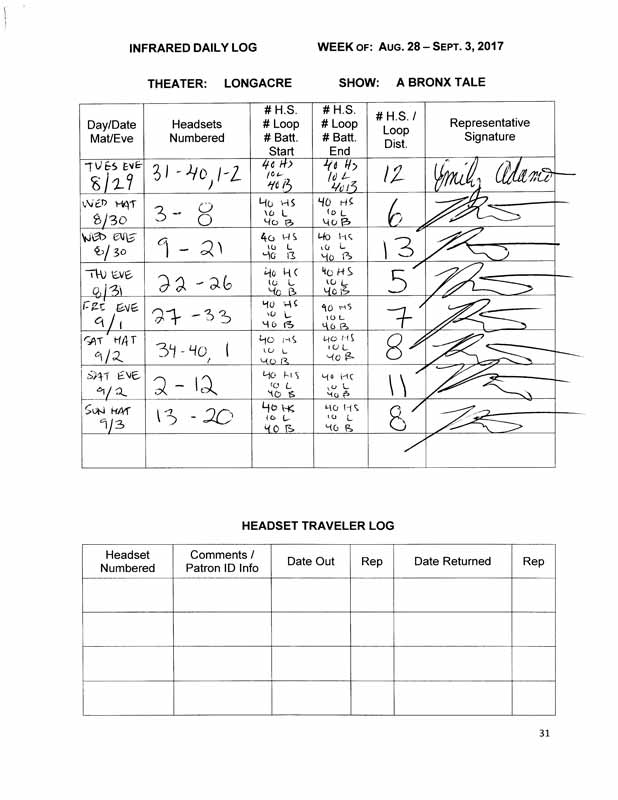 INFRARED DAILY LOG WEEK OF: AUG. 28 – SEPT. 3, 2017
THEATER: LONGACRE SHOW: A BRONX TALE
Day/Date
Mat/Eve
Headsets
Numbered
# H.S.
# Loop
# Batt.
Start
# H.S.
# Loop
# Batt.
End
# H.S. /
Loop
Dist.
Representative
Signature
TUES EVE
8/29
31-40, 1-2
40 HS
10 L
40 B
40 HS
10 L
40 B
12
Emily Adams
WED MAT
8/30
3 - 8
40 HS
10 L
40 B
40 HS
10 L
40 B
6
WED EVE
8/30
9 - 21
40 HS
10 L
40 B
40 HS
10 L
40 B
13
THU EVE
8/31
22 - 26
40 HS
10 L
40 B
40 HS
10 L
40 B
5
FRI EVE
9/1
27 - 33
40 HS
10 L
40 B
40 HS
10 L
40 B
7
SAT MAT
9/2
34-40, 1
40 HS
10 L
40 B
40 HS
10 L
40 B
8
SAT EVE
9/2
2 - 12
40 HS
10 L
40 B
40 HS
10 L
40 B
11
SUN MAT
9/3
13 - 20
40 HS
10 L
40 B
40 HS
10 L
40 B
8
HEADSET TRAVELER LOG
Headset
Numbered
Comments /
Patron ID Info
Date Out
Rep
Date Returned
Rep
31